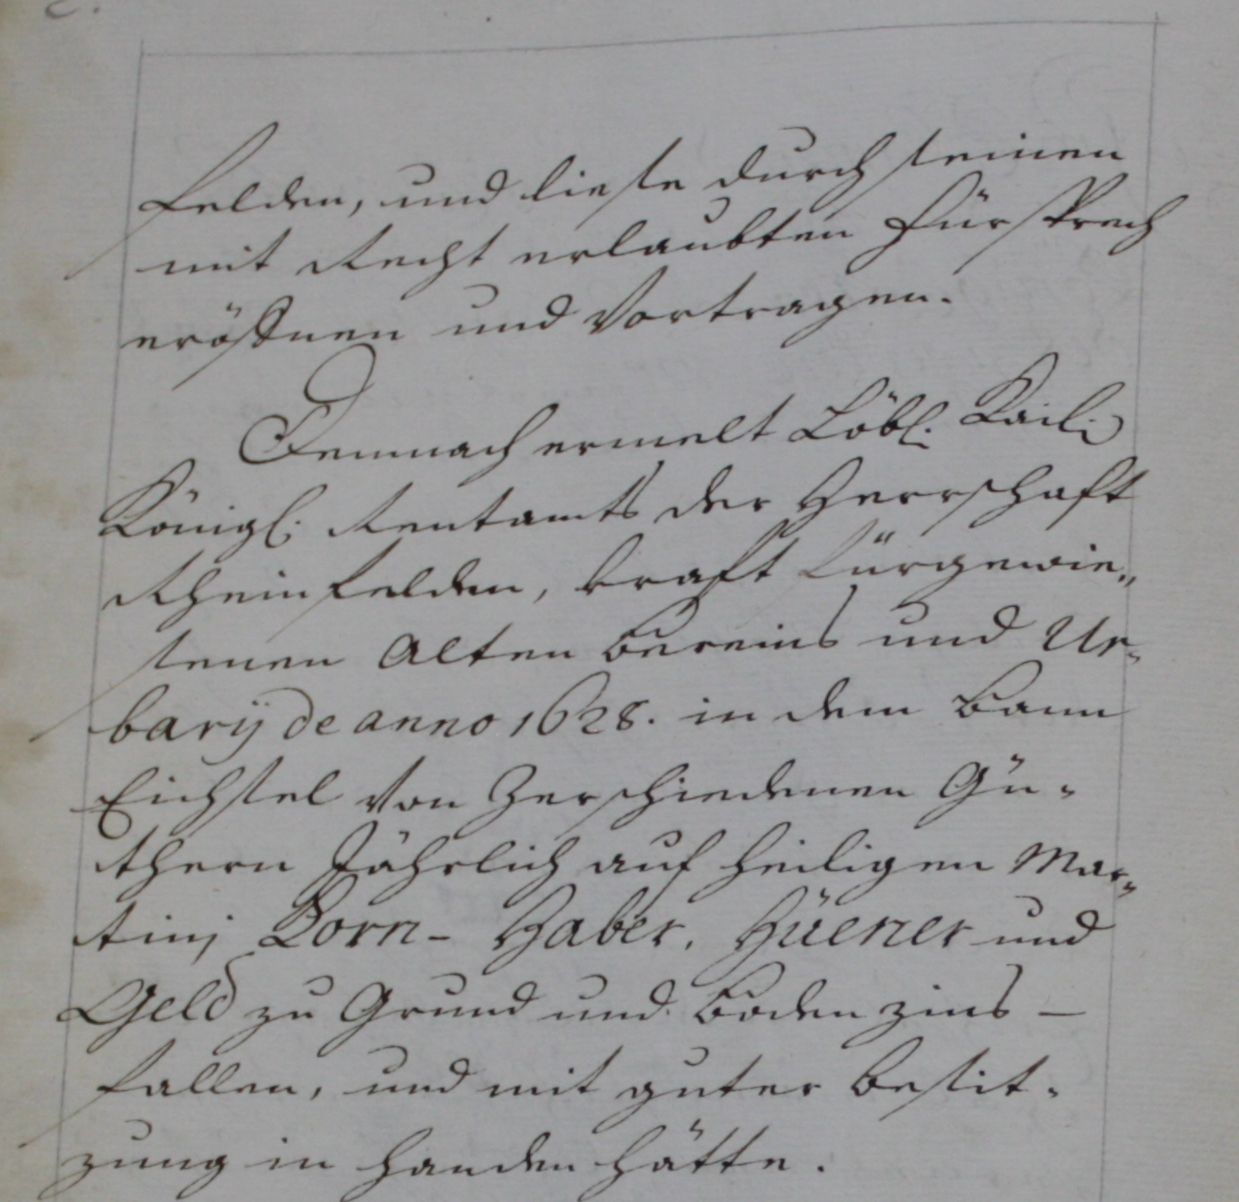 felden, und liesse durch seinen
mit Recht erlaubten Fürsprech
eröffnen und Vortragen.
Demnach ermelt Löbl. Kaiß.
Königl. Rentamts der Herrschaft
Rheinfelden, kraft fürgewie„
senen Alten Bereins und Ur„
barÿ de anno 1628. in dem Bann
Eichsel Von Zerschiedenen Gü-
thern Jährlich auf heiligen Mar„
tinj Korn- Haber, Hüener und
Geld zu Grund und Boden zins –
fallen, und mit guter besit-
zung in handen hätte.